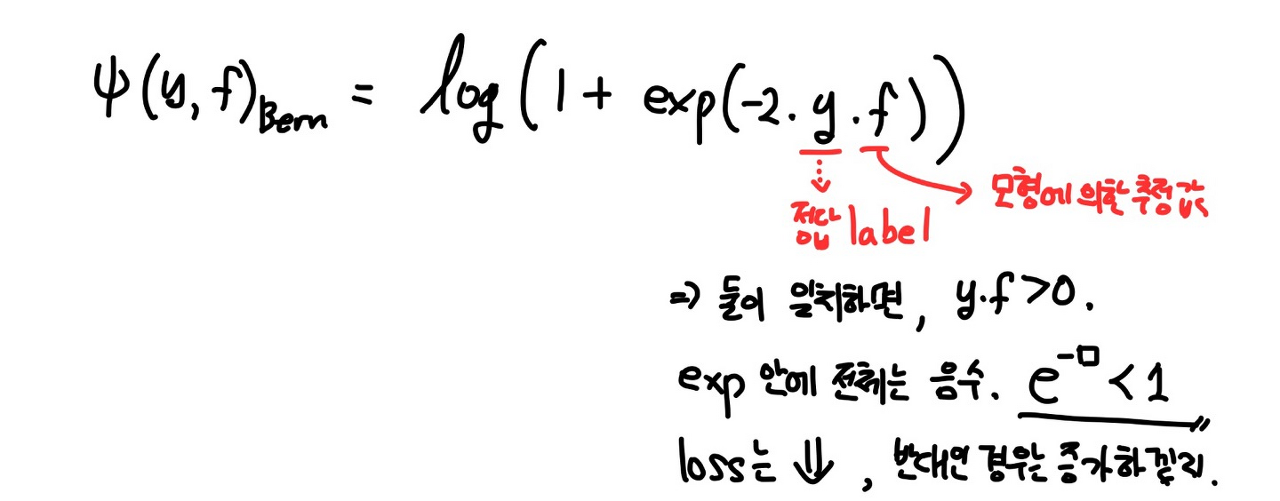 ψ(y, f)Bern = log(1 + exp(-2·y·f))
정답 label
모형에 의한 추정값
⇒ 둘이 일치하면, y·f > 0.
exp 안에 전체는 음수. e^-□ < 1
loss는 ⇓, 반대인 경우는 증가하겠지.